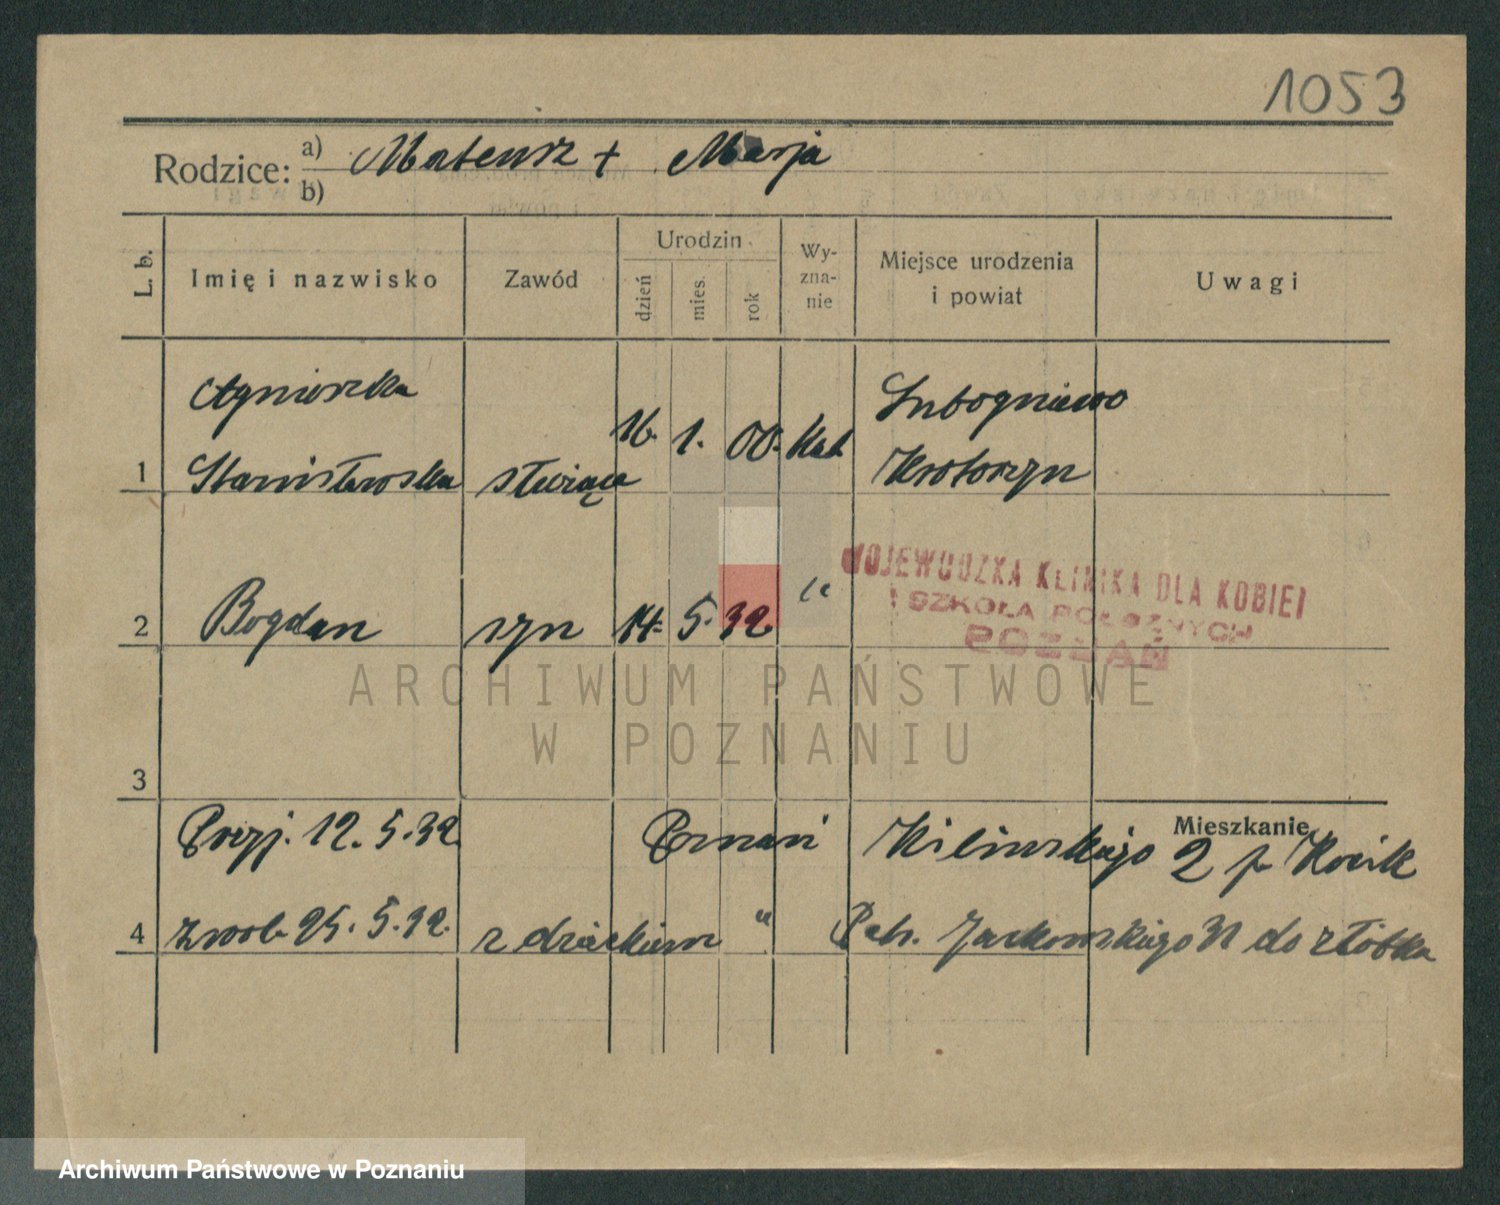 1053
Rodzice: a) Mateusz + Marja
b)
L. b. Imię i nazwisko Zawód Urodzin dzień mies. rok Wy-zna-nie Miejsce urodzenia i powiat Uwagi
Agnieszka Lubogniewo
1 Stanisławska służąca 16. 1. 00. Kat Krotoszyn
2 Bogdan syn 14. 5. 32. "
WOJEWÓDZKA KLINIKA DLA KOBIET
I SZKOŁA POŁOŻNYCH
POZNAŃ
ARCHIWUM PAŃSTWOWE
W POZNANIU
3
Mieszkanie
Przyj. 12. 5. 32. Poznań Kilińskiego 2 p Kocik
4 zwol. 25. 5. 32. z dzieckiem " Jackowskiego do żłóbka
Archiwum Państwowe w Poznaniu